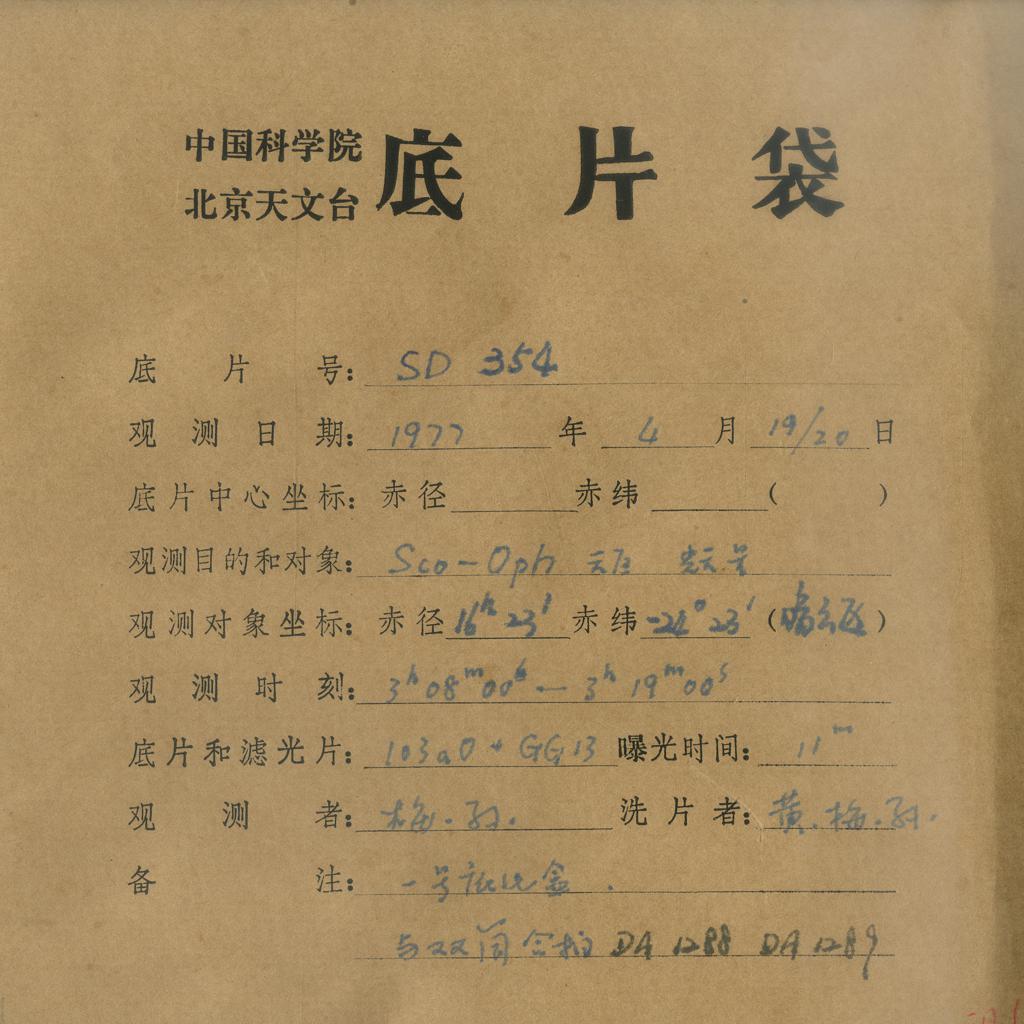 中国科学院
北京天文台
底片袋
底片号: SD 354
观测日期: 1977 年 4 月 19/20 日
底片中心坐标: 赤径 赤纬 ( )
观测目的和对象: Sco-Oph 天区
观测对象坐标: 赤径 16h 23' 赤纬 -24° 23' ( )
观测时刻: 3h 08m 00s — 3h 19m 00s
底片和滤光片: 103aO + GG13 曝光时间: 11m
观测者: 梅.孙. 洗片者: 黄.梅.孙.
备注: 一号 盒.
与双筒合拍 DA 1288 DA 1289